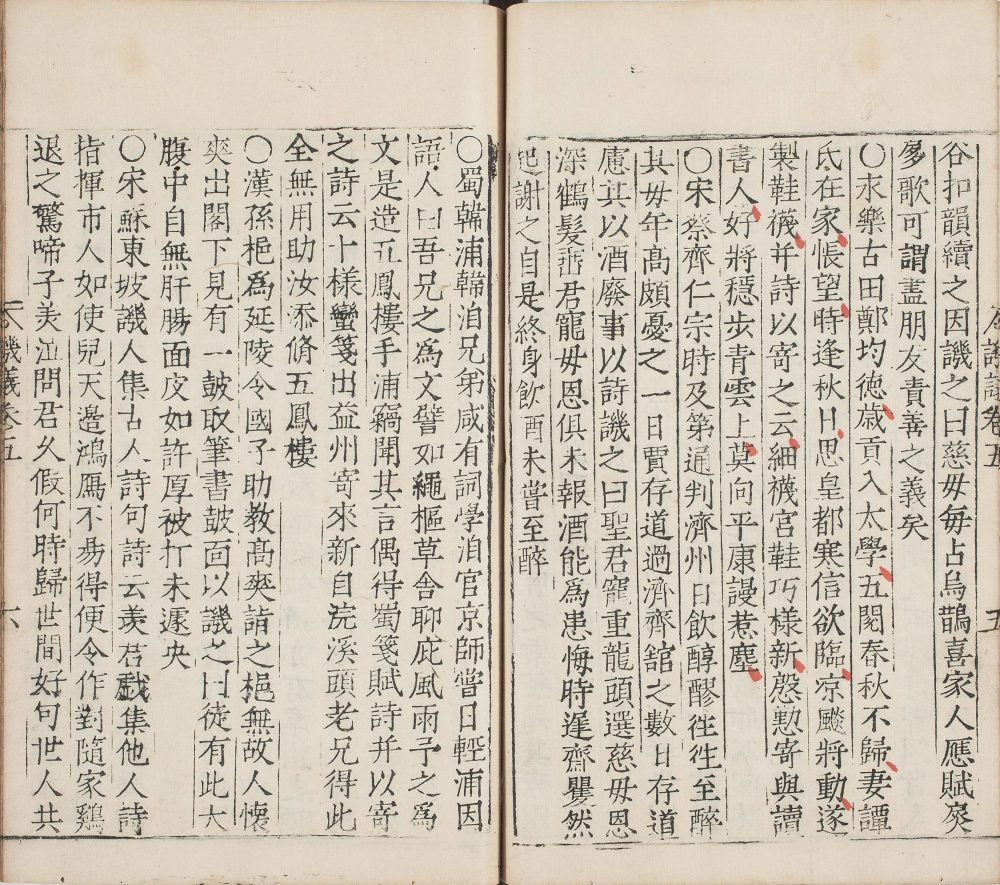 谷扣韻續之因譏之曰慈毋每占烏鵲喜家人應賦扊
扅歌可謂盡朋友責善之義矣
○永樂古田鄭均德歲貢入太學五閱春秋不歸妻譚
氏在家悵望時逢秋日思皇都寒信欲臨凉颷將動遂
製鞋襪并詩以寄之云細襪宮鞋巧樣新慇懃寄與讀
書人好將穩步青雲上莫向平康謾惹塵
○宋蔡齊仁宗時及第通判濟州日飲醇醪徃徃至醉
其毋年高頗憂之一日賈存道過濟齊舘之數日存道
慮其以酒廢事以詩譏之曰聖君寵重龍頭選慈毋恩
深鶴髮垂君寵毋恩俱未報酒能爲患悔時遲齊瞿然
起謝之自是終身飲酒未嘗至醉
譏語卷五
五
○蜀韓浦韓洎兄弟咸有詞學洎官京師嘗日輕浦因
語人曰吾兄之爲文譬如繩樞草舍聊庇風雨予之爲
文是造五鳳樓手浦竊聞其言偶得蜀箋賦詩并以寄
之詩云十樣蠻箋出益州寄來新自浣溪頭老兄得此
全無用助汝添脩五鳳樓
○漢孫挹爲延陵令國子助教高爽詣之挹無故人懷
爽出閣下見有一鼓取筆書鼓面以譏之曰徒有此大
腹中自無肝腸面皮如許厚被打未遽央
○宋蘇東坡譏人集古人詩句詩云羡君戱集他人詩
指揮市人如使兒天邉鴻鴈不易得便令作對隨家鷄
退之驚啼子美泣問君久假何時歸世間好句世人共
譏義卷五
六